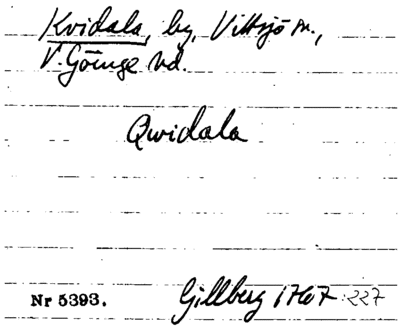 Kvidala, by, Vittsjö sn.,
V. Göinge hd.
Qwidala
Nr 5393. Gillberg 1767:227